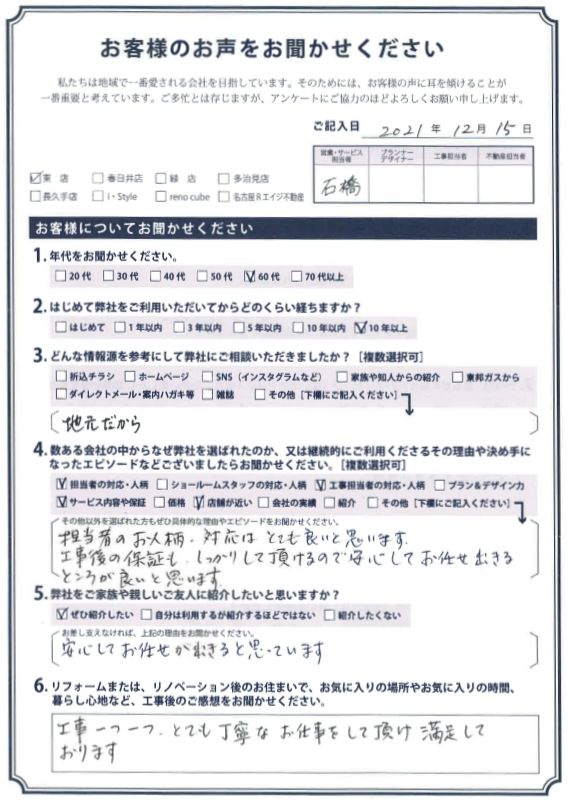 お客様のお声をお聞かせください
私たちは地域で一番愛される会社を目指しています。そのためには、お客様の声に耳を傾けることが
一番重要と考えています。ご多忙とは存じますが、アンケートにご協力のほどよろしくお願い申し上げます。
ご記入日 2021 年 12 月 15 日
営業・サービス担当者 プランナーデザイナー 工事担当者 不動産担当者
石橋
☑東 店 □春日井店 □緑 店 □多治見店
□長久手店 □i・Style □reno cube □名古屋Rエイジ不動産
お客様についてお聞かせください
1. 年代をお聞かせください。
□20代 □30代 □40代 □50代 ☑60代 □70代以上
2. はじめて弊社をご利用いただいてからどのくらい経ちますか？
□はじめて □1年以内 □3年以内 □5年以内 □10年以内 ☑10年以上
3. どんな情報源を参考にして弊社にご相談いただきましたか？［複数選択可］
□折込チラシ □ホームページ □SNS（インスタグラムなど） □家族や知人からの紹介 □東邦ガスから
□ダイレクトメール・案内ハガキ等 □雑誌 □その他［下欄にご記入ください］
地元だから
4. 数ある会社の中からなぜ弊社を選ばれたのか、又は継続的にご利用くださるその理由や決め手に
なったエピソードなどございましたらお聞かせください。［複数選択可］
☑担当者の対応・人柄 □ショールームスタッフの対応・人柄 ☑工事担当者の対応・人柄 □プラン＆デザイン力
☑サービス内容や保証 □価格 ☑店舗が近い □会社の実績 □紹介 □その他［下欄にご記入ください］
その他以外を選ばれた方もぜひ具体的な理由やエピソードをお聞かせください。
担当者のお人柄、対応はとても良いと思います。
工事後の保証も、しっかりして頂けるので安心してお任せ出きる
ところが良いと思います。
5. 弊社をご家族や親しいご友人に紹介したいと思いますか？
☑ぜひ紹介したい □自分は利用するが紹介するほどではない □紹介したくない
お差し支えなければ、上記の理由をお聞かせください。
安心してお任せが出きると思っています
6. リフォームまたは、リノベーション後のお住まいで、お気に入りの場所やお気に入りの時間、
暮らし心地など、工事後のご感想をお聞かせください。
工事一つ一つ、とても丁寧なお仕事をして頂け満足して
おります